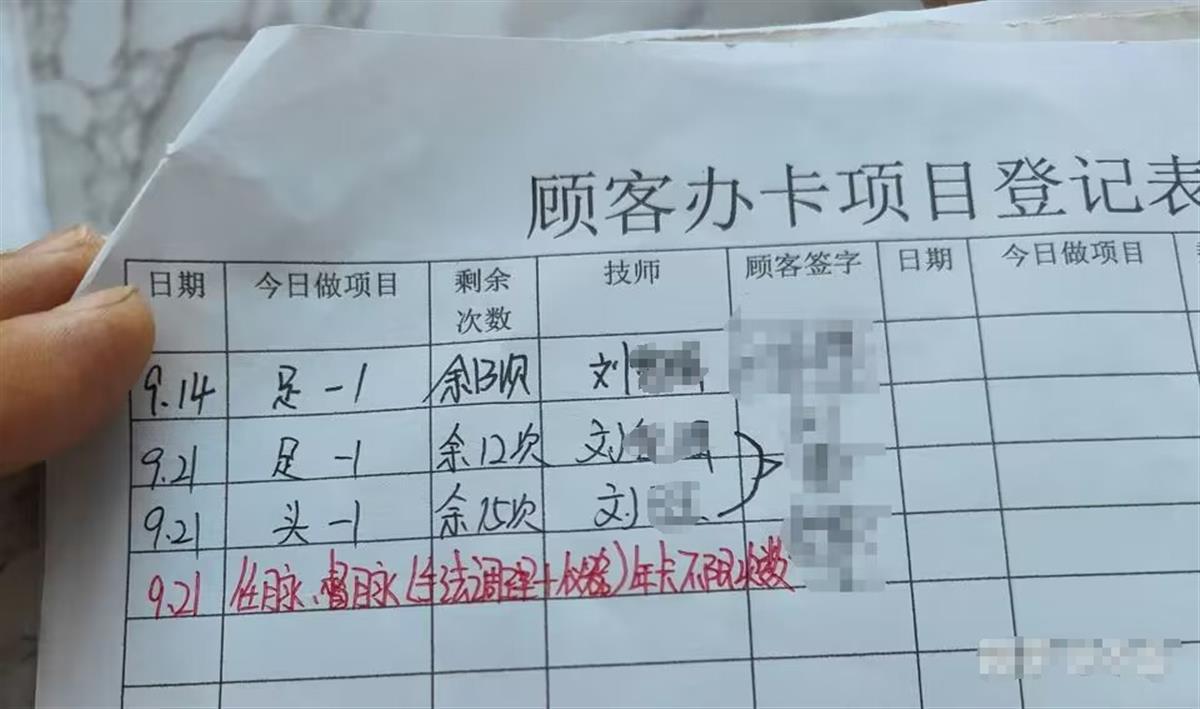 顾客办卡项目登记表
日期 今日做项目 剩余次数 技师 顾客签字 日期 今日做项目
9.14 足 -1 余13次 刘
9.21 足 -1 余12次 刘
9.21 头 -1 余15次 刘
9.21 任脉、督脉(手法调理+仪器)年卡不限次数